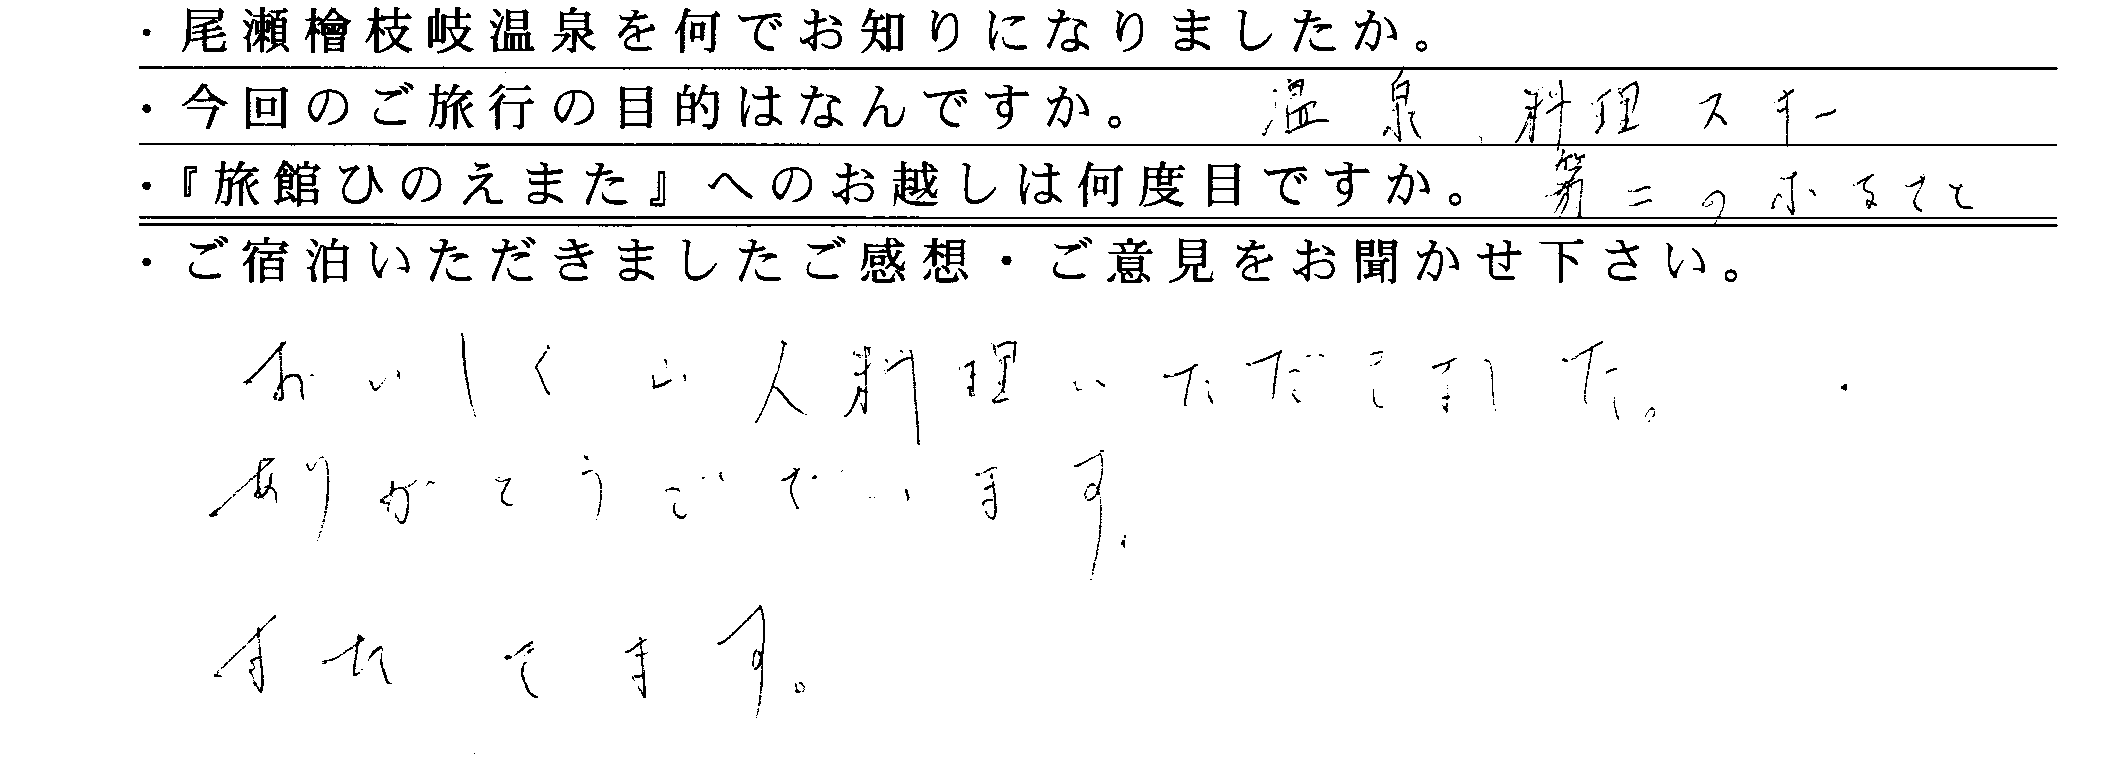 ・尾瀬檜枝岐温泉を何でお知りになりましたか。
・今回のご旅行の目的はなんですか。 温泉、料理スキー
・『旅館ひのえまた』へのお越しは何度目ですか。 第二のふるさと
・ご宿泊いただきましたご感想・ご意見をお聞かせ下さい。
おいしく山人料理いただきました。
ありがとうございます.
またきます。